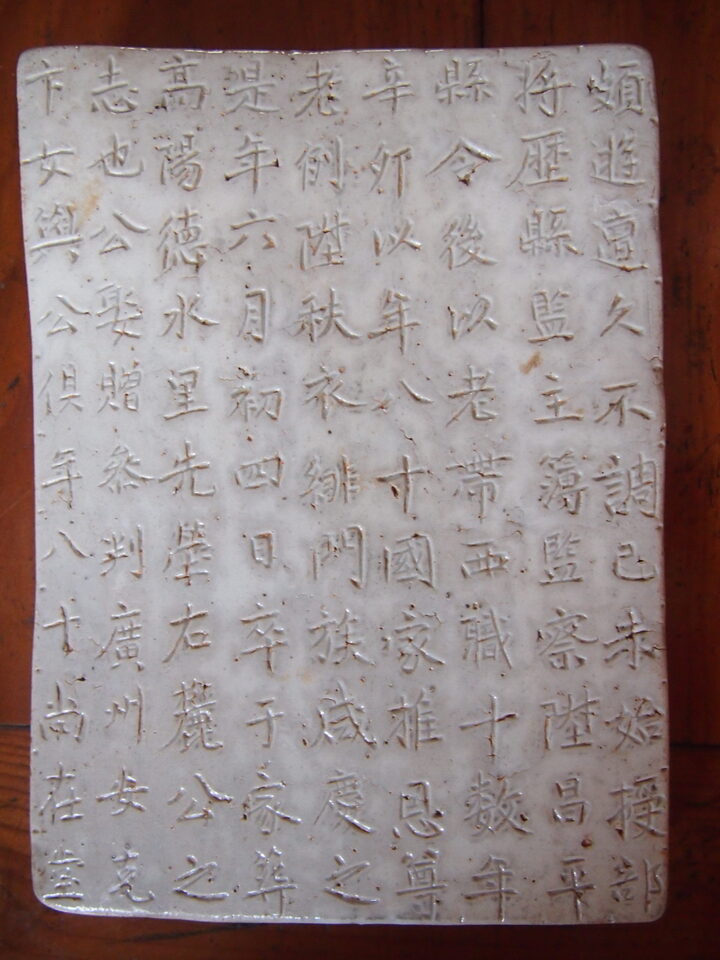 頗遊宦久不調己未始授部
將歷縣監主簿監察陞昌平
縣令後以老帶西職十數年
辛卯以年八十國家推恩尊
老例陞秩衣緋門族咸慶之
是年六月初四日卒于家葬
高陽德水里先塋右麓公之
志也公娶贈叅判廣州安克
卞女與公俱年八十尚在堂